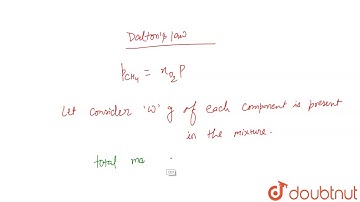 Dalton's law
p_CH4 = x2 P
Let consider 'w' g of each component is present
in the mixture.
total ma
doubtnut